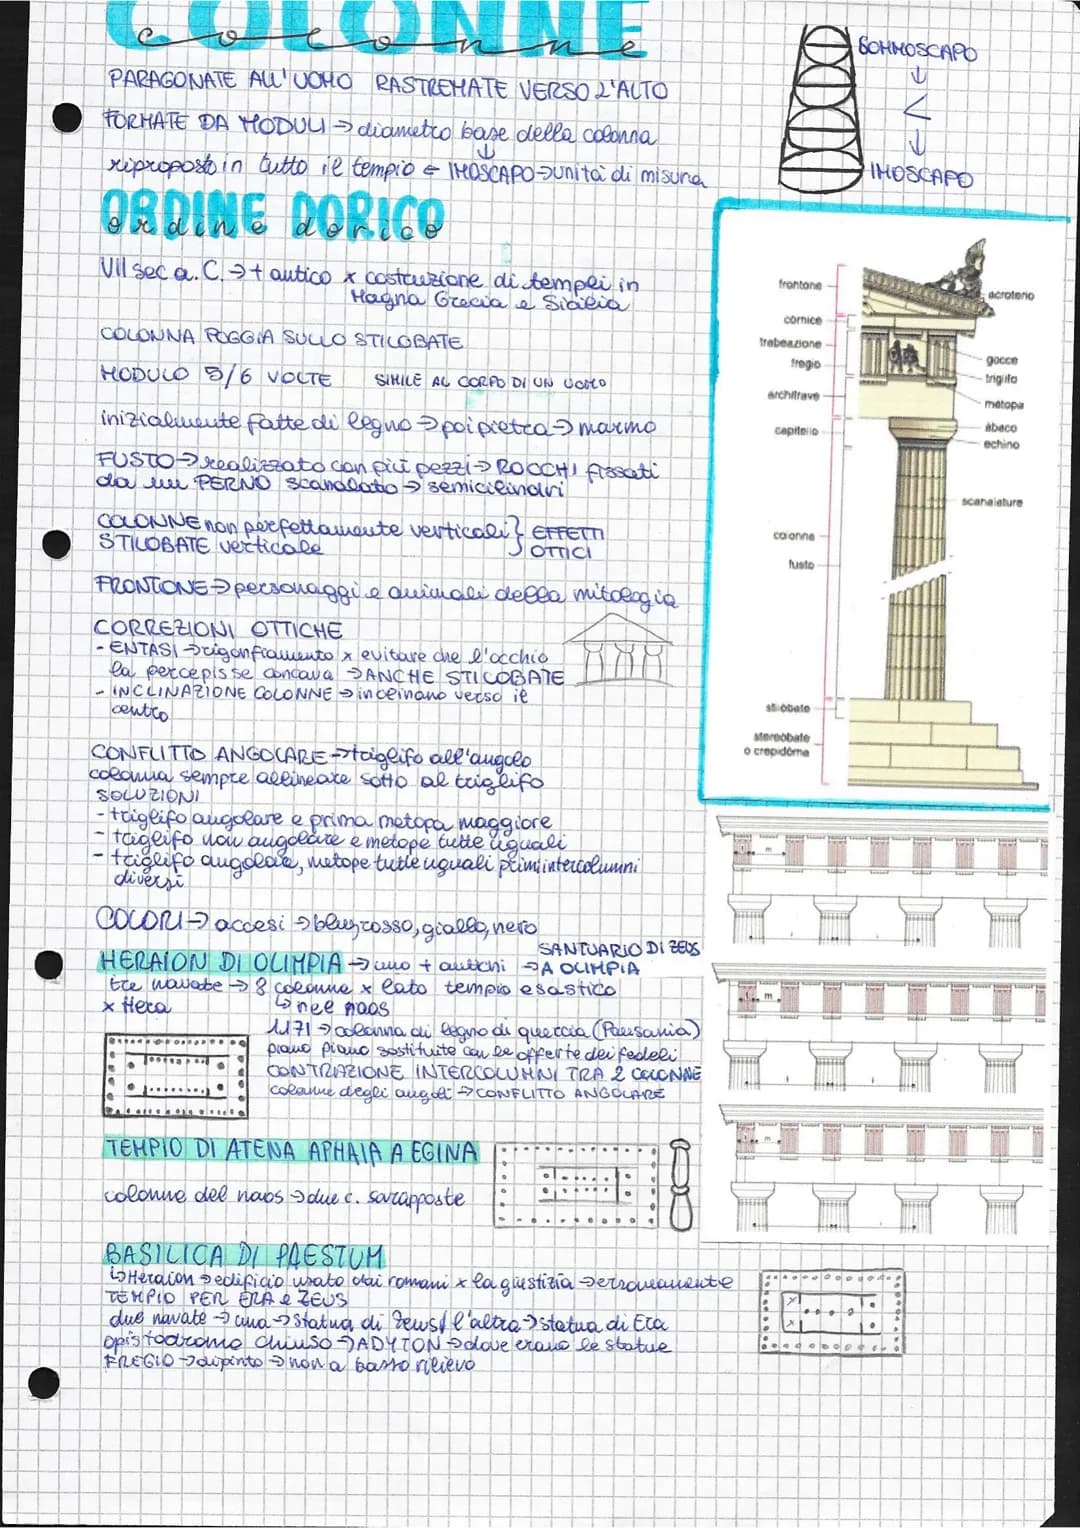 COLONNE
colonne
PARAGONATE ALL'UOMO RASTREMATE VERSO L'ALTO
FORMATE DA MODULI → diametro base della colonna
↓
riproposto in tutto il tempio ← IMOSCAPO → unità di misura
SOMMOSCAPO
↓
<
↓
IMOSCAPO
ORDINE DORICO
ordine dorico
VII sec a.C. → + antico x costruzione di templi in
Magna Grecia e Sicilia
COLONNA POGGIA SULLO STILOBATE
MODULO 5/6 VOLTE SIMILE AL CORPO DI UN UOMO
inizialmente fatte di legno → poi pietra → marmo
FUSTO → realizzato con più pezzi → ROCCHI fissati
da un PERNO scanalato → semicilindri
COLONNE non perfettamente verticali } EFFETTI
STILOBATE verticale OTTICI
FRONTONE → personaggi e animali della mitologia
CORREZIONI OTTICHE
- ENTASI → rigonfiamento x evitare che l'occhio
la percepisse concava → ANCHE STILOBATE
- INCLINAZIONE COLONNE → inclinano verso il
centro
CONFLITTO ANGOLARE → triglifo all'angolo
colonna sempre allineate sotto al triglifo
SOLUZIONI
- triglifo angolare e prima metopa maggiore
- triglifo non angolare e metope tutte uguali
- triglifo angolare, metope tutte uguali primi intercolumni
diversi
COLORI → accesi → blu, rosso, giallo, nero
frontone
acroterio
cornice
trabeazione
fregio
gocce
triglifo
architrave
metopa
capitello
abaco
echino
scanalature
colonna
fusto
stilobate
stereobate
o crepidoma
m
m
m
HERAION DI OLIMPIA → uno + antichi → SANTUARIO DI ZEUS
A OLIMPIA
tre navate → 8 colonne x lato tempio esastico
x Hera ↳ nel naos
1171 → colonna di legno di quercia (Pausania)
piano piano sostituite con le offerte dei fedeli
CONTRAZIONE INTERCOLUMNI TRA 2 COLONNE
colonne degli angoli → CONFLITTO ANGOLARE
TEMPIO DI ATENA APHAIA A EGINA
colonne del naos → due c. sovrapposte
BASILICA DI PAESTUM
↳ Heraion → edificio usato dai romani x la giustizia → erroneamente
TEMPIO PER ERA e ZEUS
due navate → una → statua di Zeus / l'altra → statua di Era
opistodromo chiuso → ADYTON → dove erano le statue
FREGIO → dipinto → non a basso rilievo